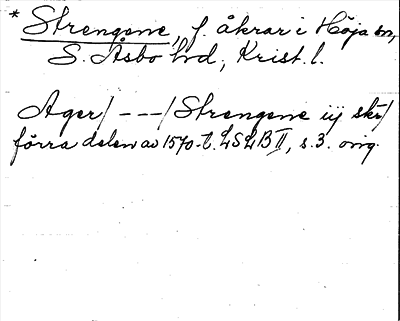 * Strengene, f. åkrar i Höja sn,
S. Åsbo hd, Krist. l.
Ager/ --- /Strengene iij skr/
förra delen av 1570-t. LSLB II, s. 3. orig.